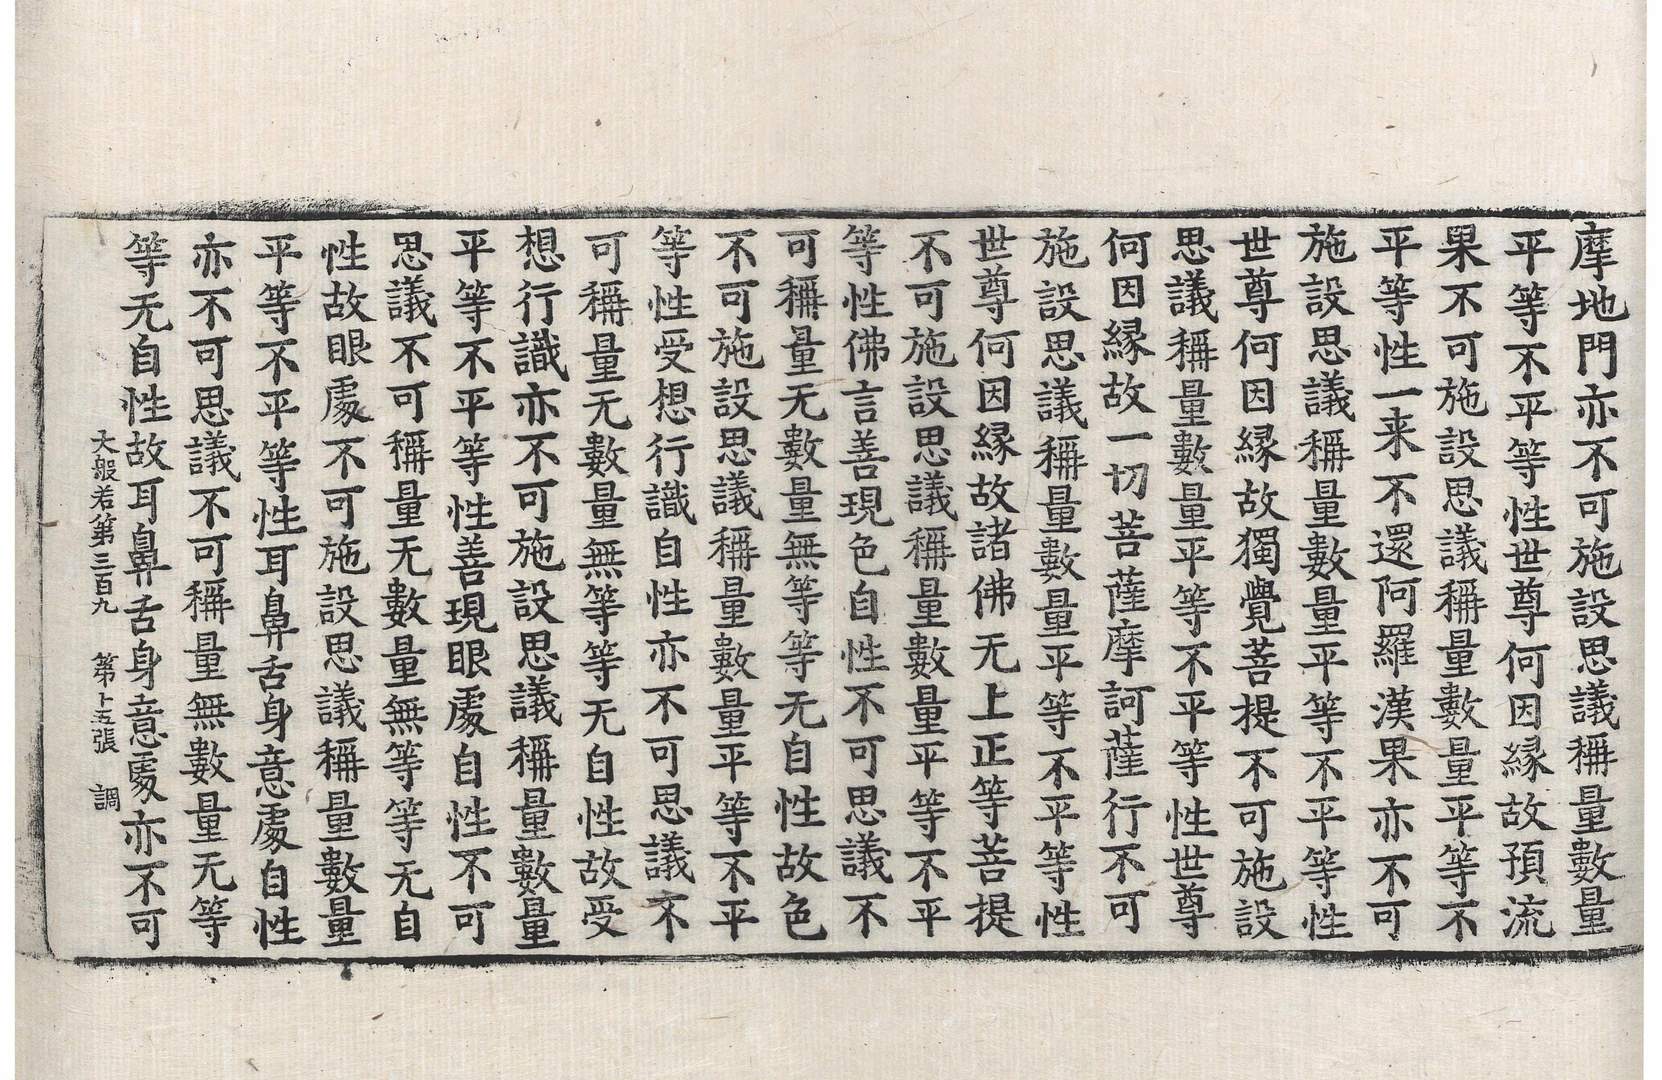 摩地門亦不可施設思議稱量數量
平等不平等性世尊何因緣故預流
果不可施設思議稱量數量平等不
平等性一来不還阿羅漢果亦不可
施設思議稱量數量平等不平等性
世尊何因緣故獨覺菩提不可施設
思議稱量數量平等不平等性世尊
何因緣故一切菩薩摩訶薩行不可
施設思議稱量數量平等不平等性
世尊何因緣故諸佛无上正等菩提
不可施設思議稱量數量平等不平
等性佛言善現色自性不可思議不
可稱量无數量無等等无自性故色
不可施設思議稱量數量平等不平
等性受想行識自性亦不可思議不
可稱量无數量無等等无自性故受
想行識亦不可施設思議稱量數量
平等不平等性善現眼處自性不可
思議不可稱量无數量無等等无自
性故眼處不可施設思議稱量數量
平等不平等性耳鼻舌身意處自性
亦不可思議不可稱量無數量无等
等无自性故耳鼻舌身意處亦不可
大般若第三百九 第十五張 調